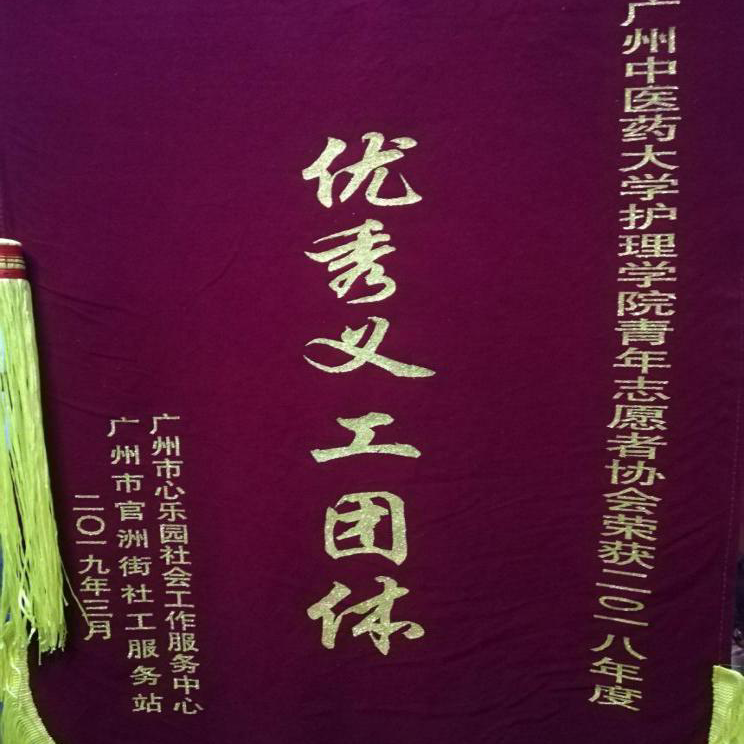 广州中医药大学护理学院青年志愿者协会荣获二〇一八年度
优秀义工团体
广州市心乐园社会工作服务中心
广州市官洲街社工服务站
二〇一九年三月